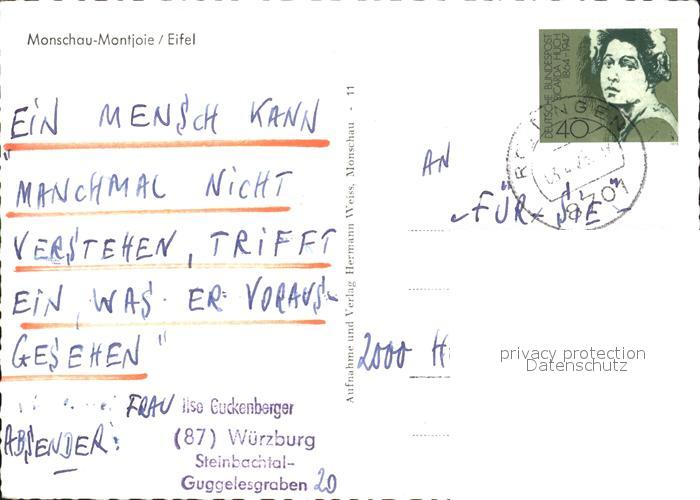 Monschau-Montjoie / Eifel
EIN MENSCH KANN
"MANCHMAL NICHT
VERSTEHEN, TRIFFT
EIN, WAS ER VORAUS-
GESEHEN"
FRAU Ilse Guckenberger
ABSENDER:
(87) Würzburg
Steinbachtal-
Guggelesgraben 20
Aufnahme und Verlag Hermann Weiss, Monschau - 11
DEUTSCHE BUNDESPOST
RICARDA HUCH
1864-1947
40
8701
AN
"FÜR SIE"
2000 H
privacy protection
Datenschutz